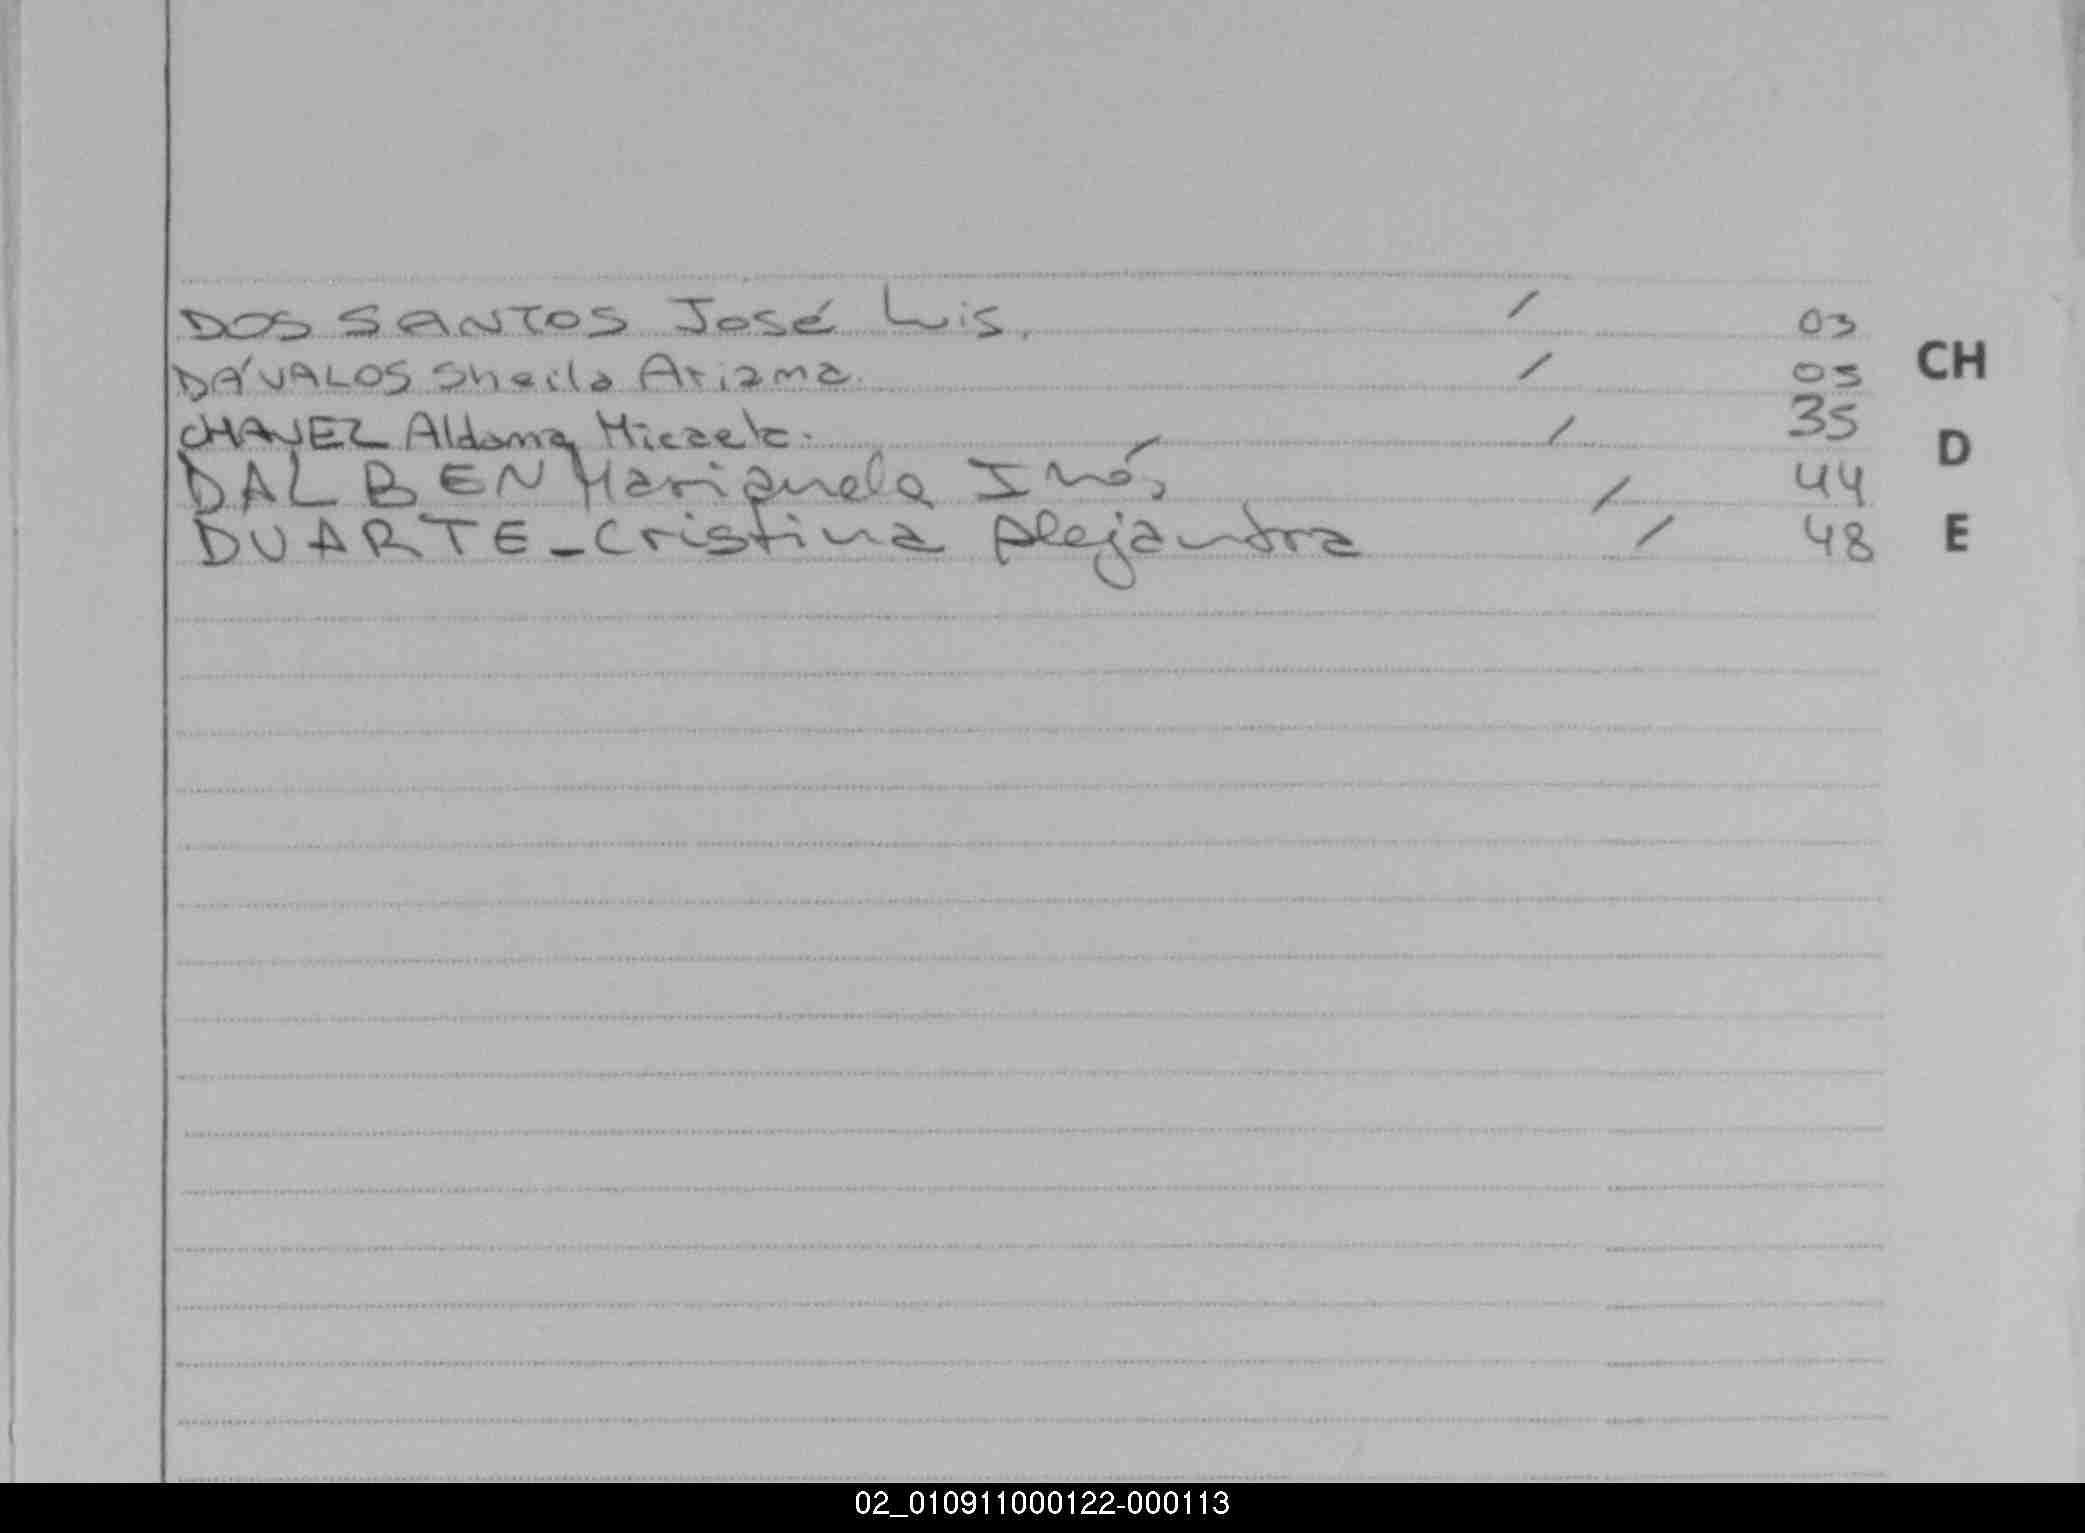 DOS SANTOS José Luis. / 03
DÁVALOS Sheila Ariama. / 05
CH
CHAVEZ Aldana Micaela. / 35
D
DAL BEN Mariquela Inés / 44
DUARTE - Cristina Alejandra / 48
E
02_010911000122-000113